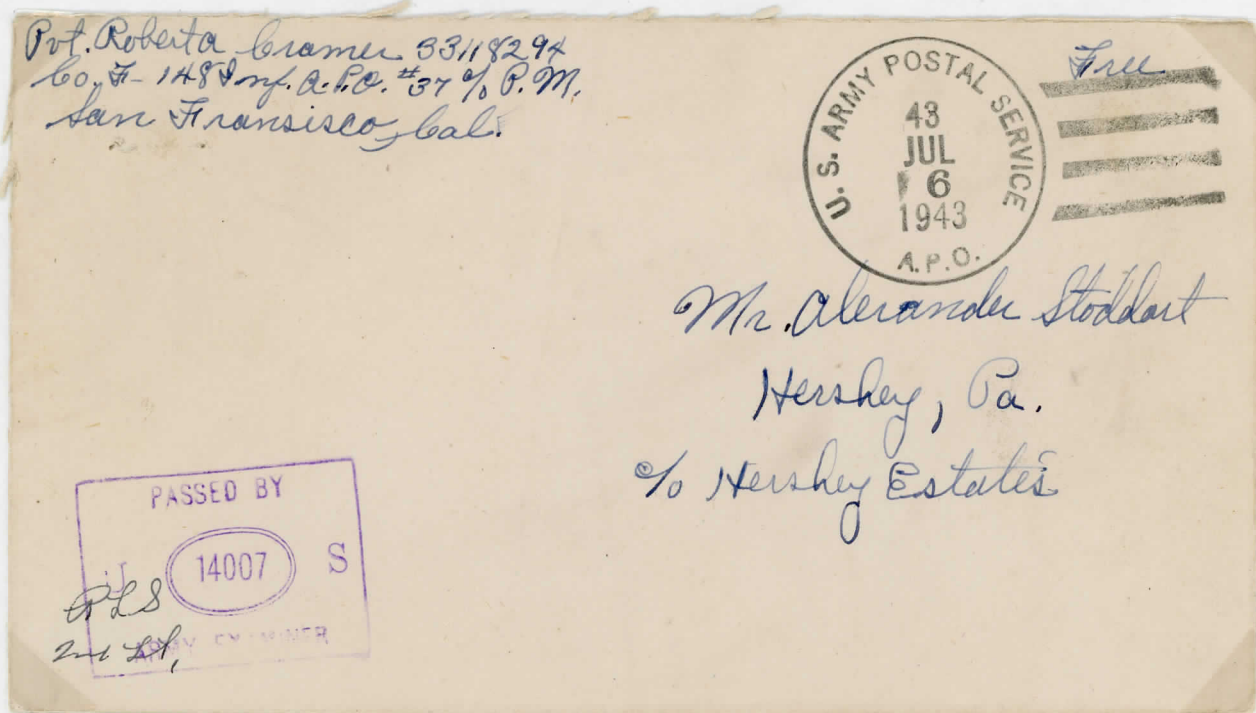 Pvt. Robert A Cramer 33118294
Co. F- 148 Inf. A.P.O. #37 c/o P.M.
San Fransisco, Cal.
Free
U. S. ARMY POSTAL SERVICE
43
JUL
6
1943
A.P.O.
Mr. Alexander Stoddart
Hershey, Pa.
c/o Hershey Estates
PASSED BY
U 14007 S
ARMY EXAMINER
RLS
2nd Lt,